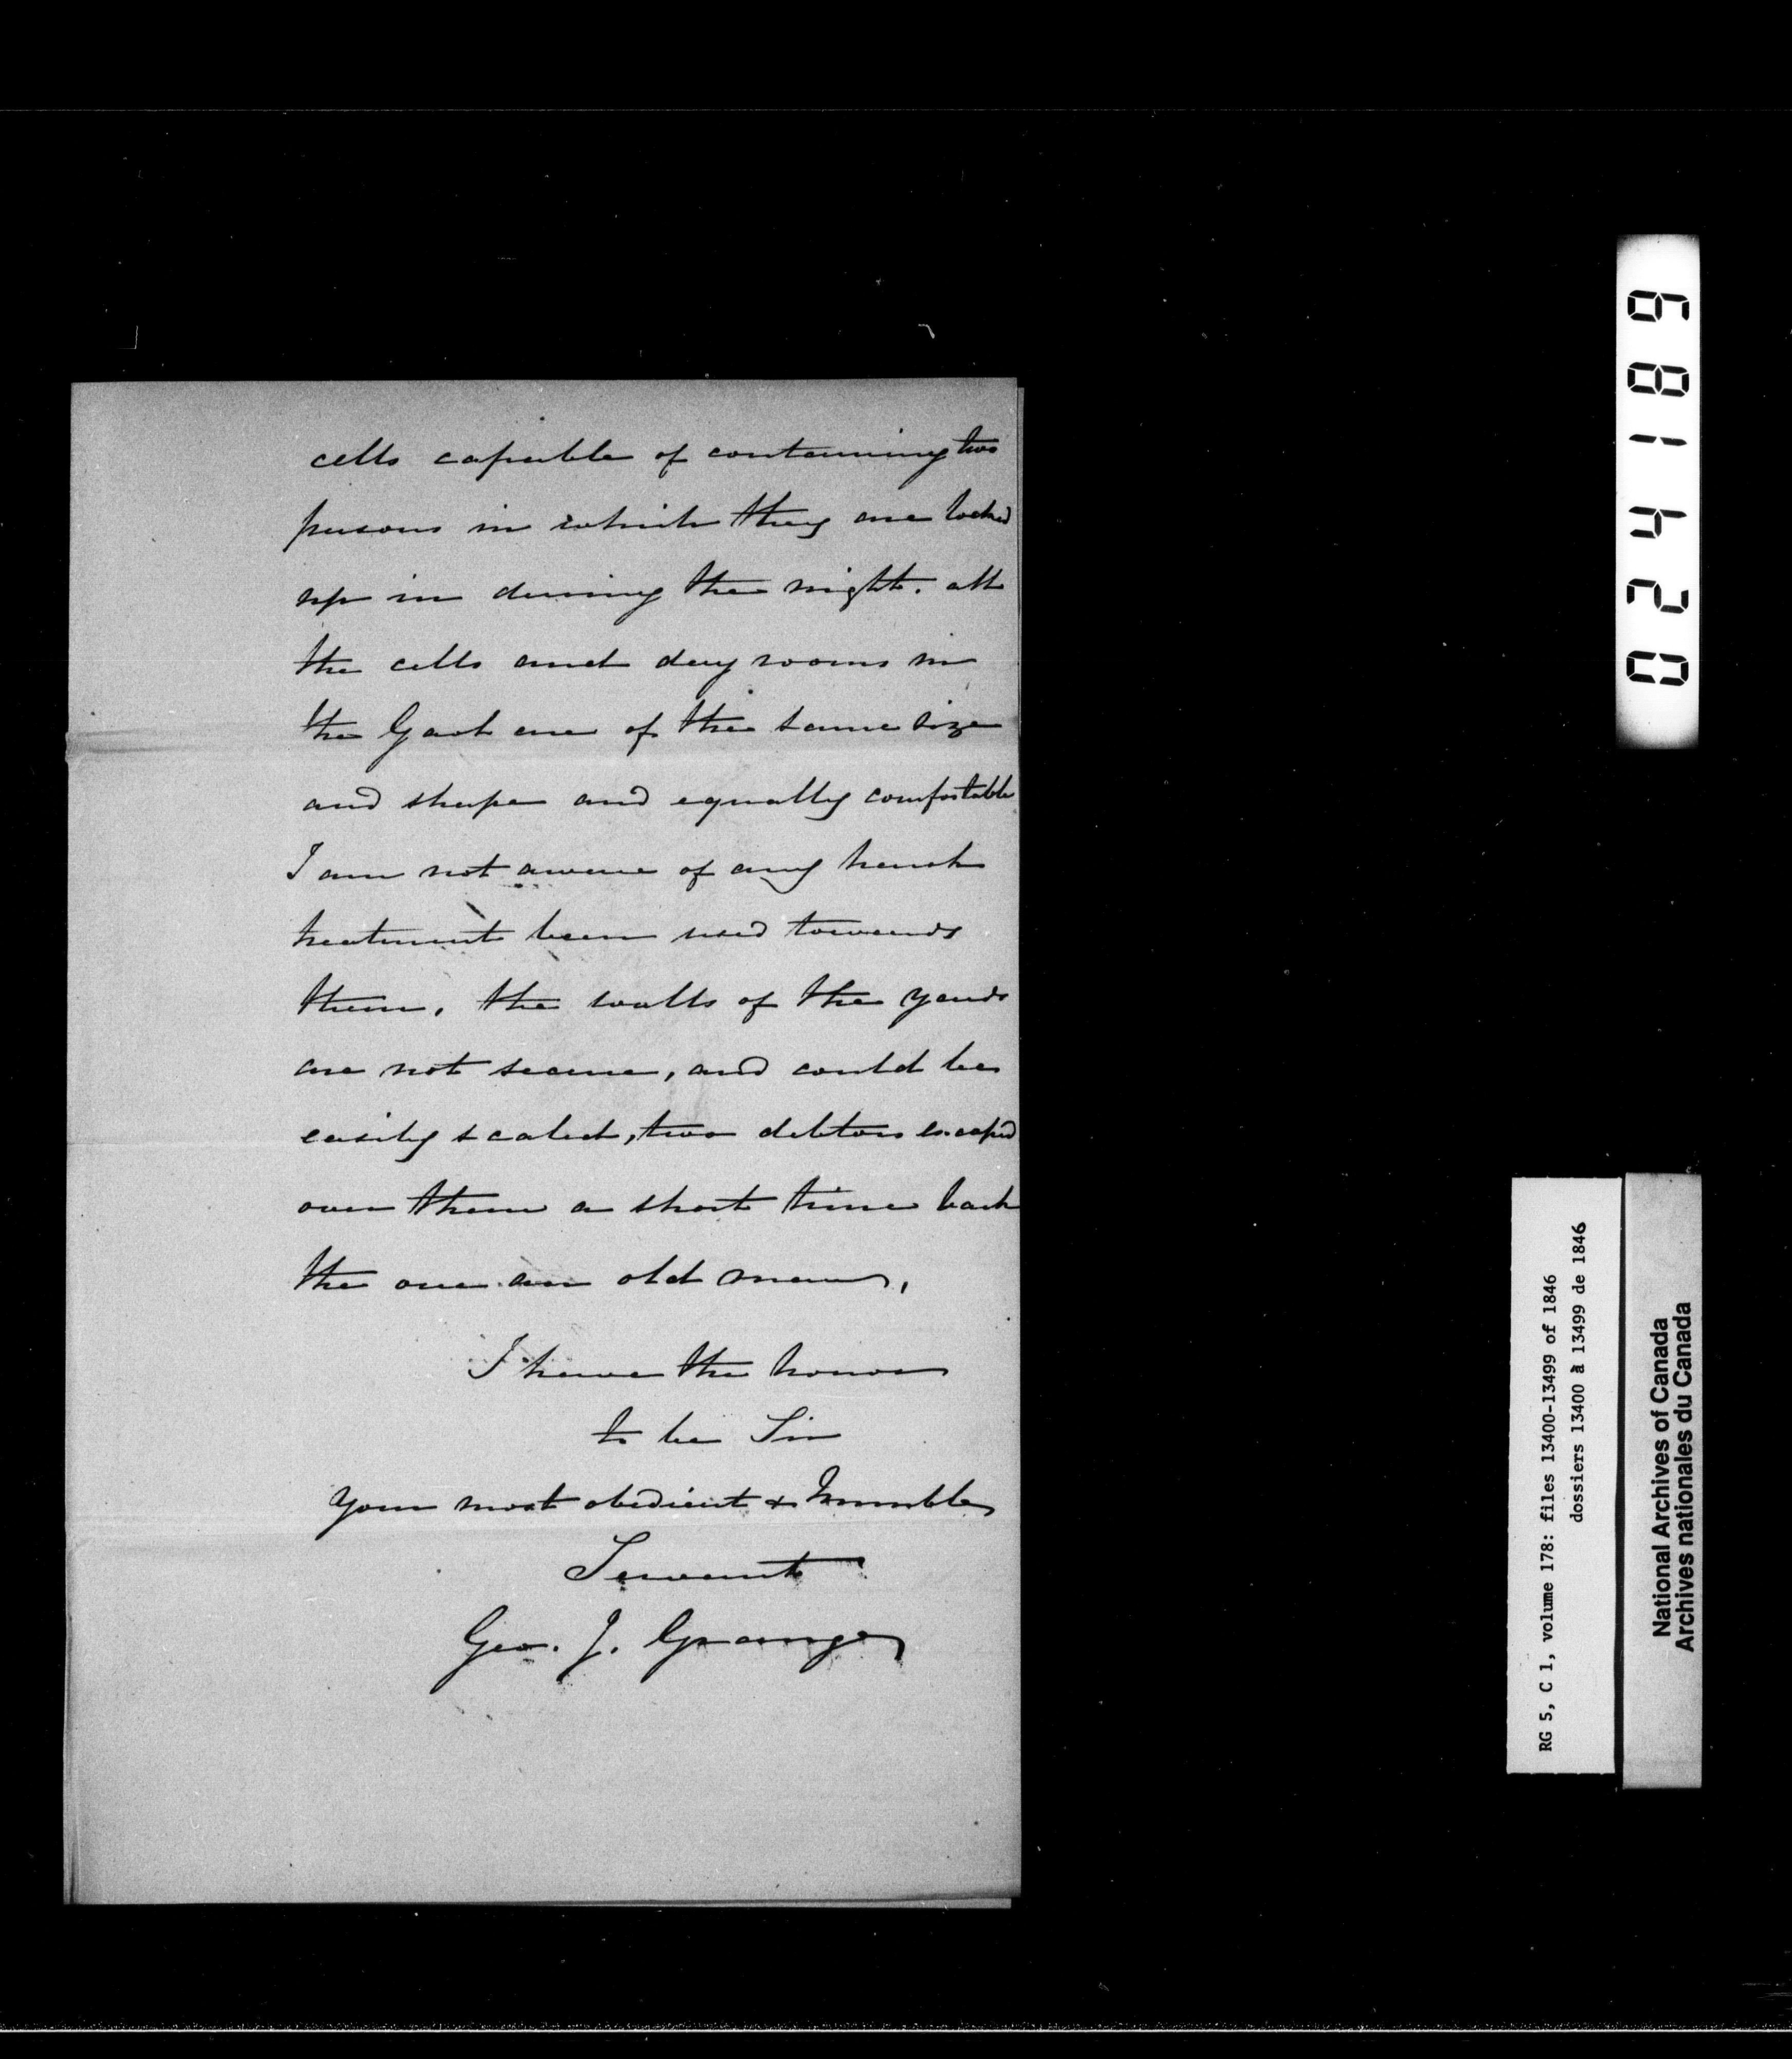 cells capable of containing two
persons in which they are locked
up in during the night. all
the cells and day rooms in
the Gaol are of the same size
and shape and equally comfortable
I am not aware of any harsh
treatment been used towards
them. the walls of the yards
are not secure, and could be
easily scaled, two debtors escaped
over them a short time back
the one an old man,
I have the honor
to be Sir
Your most obedient & humble
Servant
Geo. J. Grange
024189
RG 5, C 1, volume 178: files 13400-13499 of 1846
dossiers 13400 à 13499 de 1846
National Archives of Canada
Archives nationales du Canada